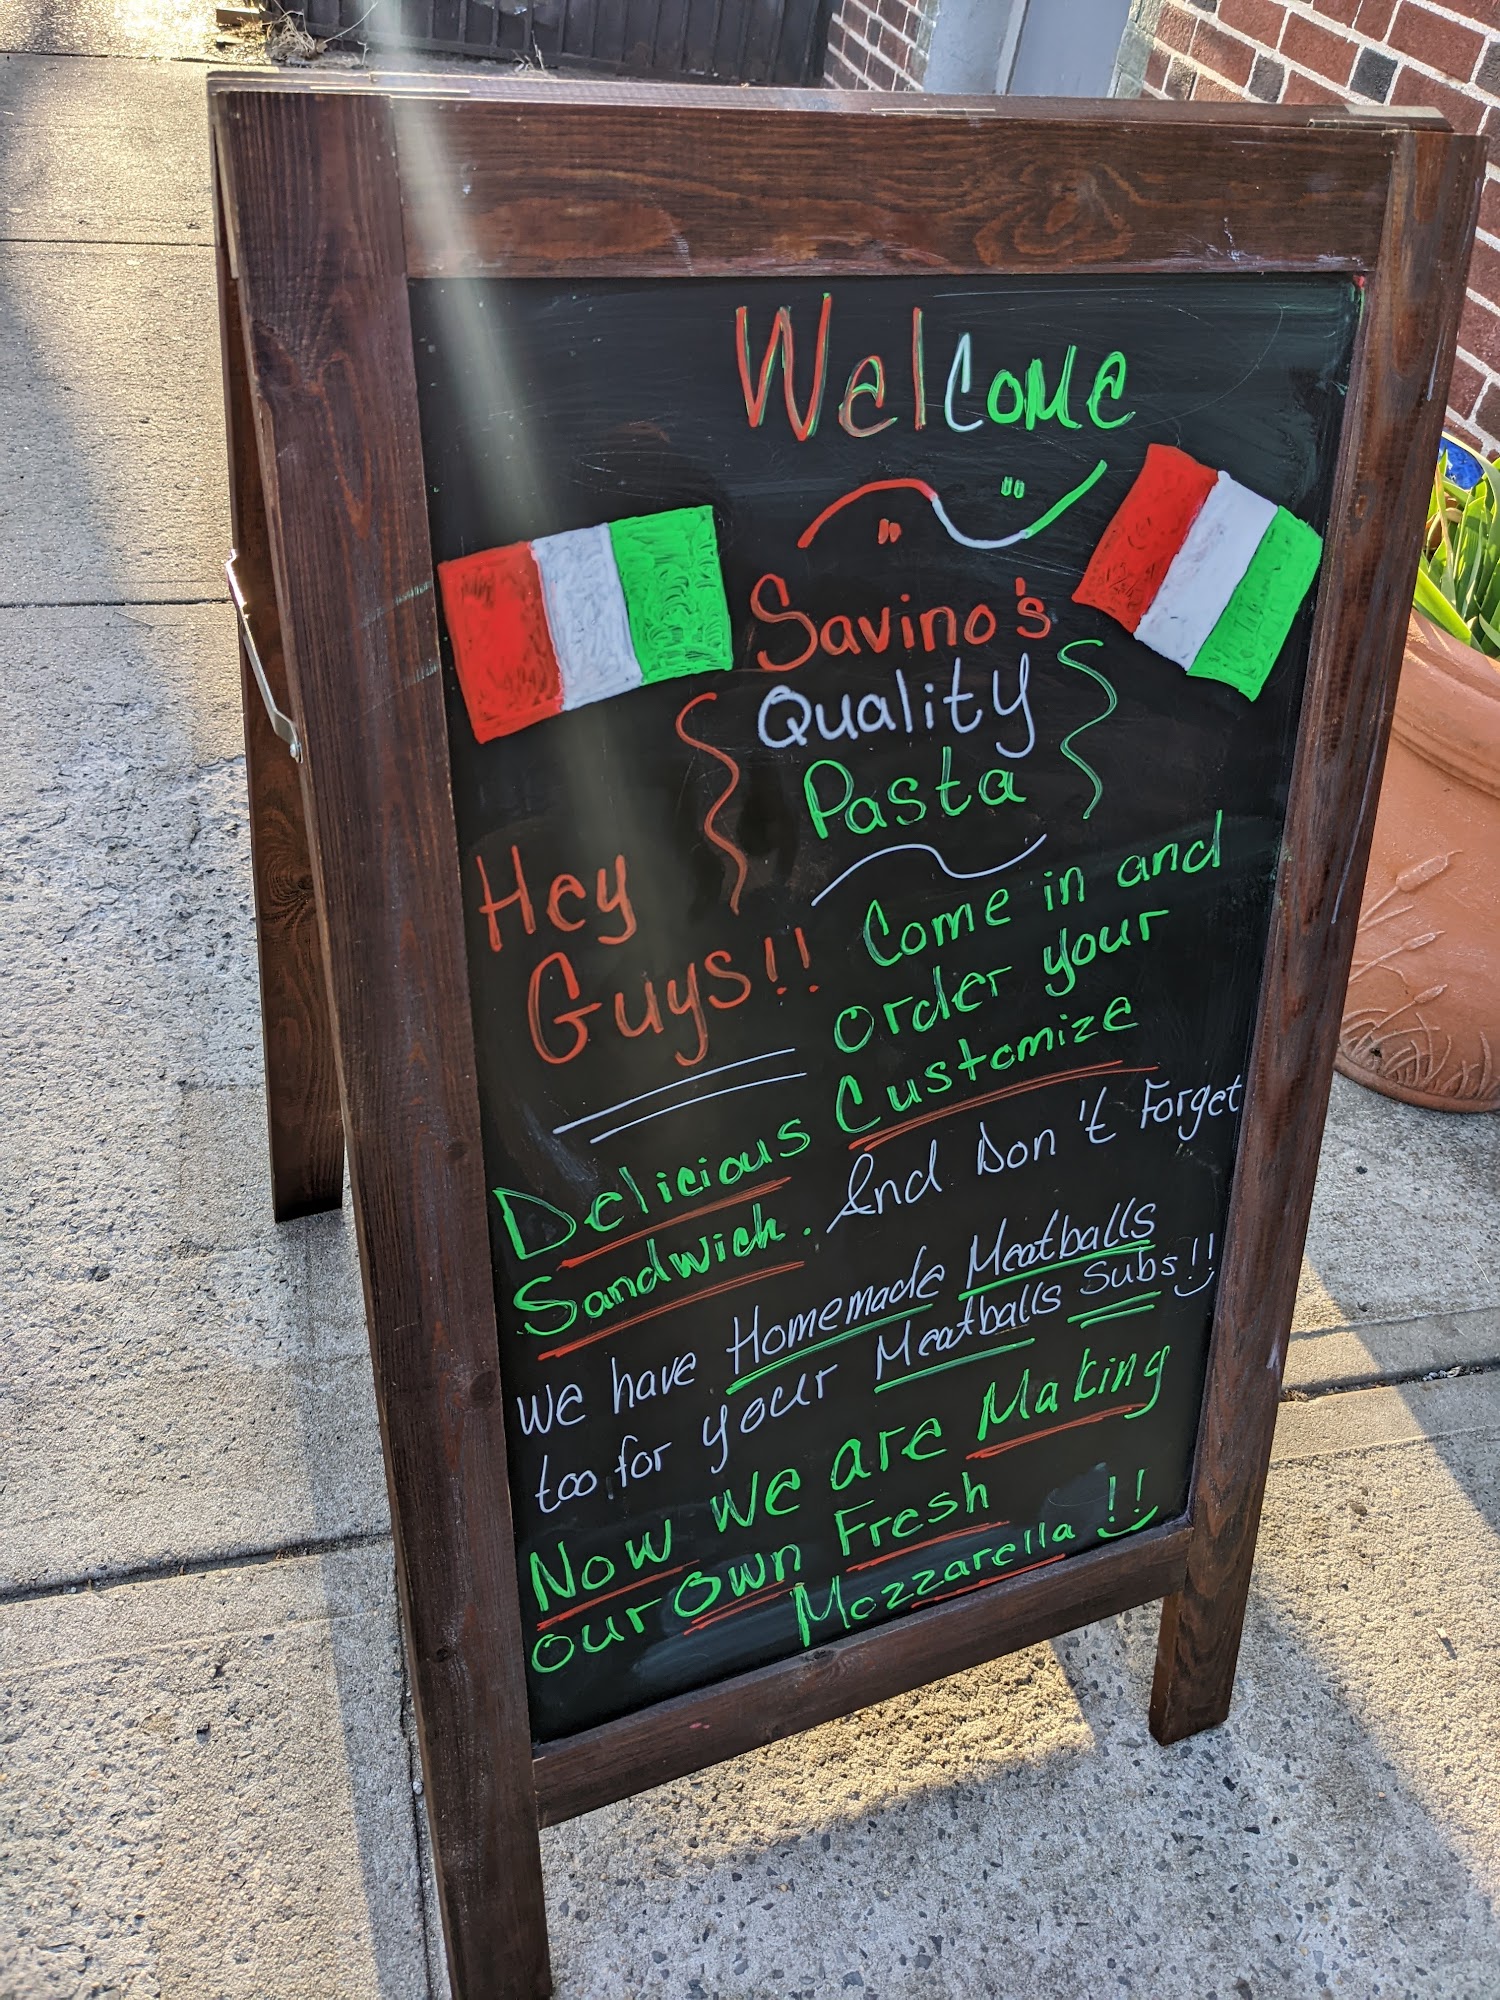 Welcome
Savino's
Quality
Pasta
Hey
Guys!! Come in and
order your
Delicious Customize
Sandwich. And Don't Forget
we have Homemade Meatballs
too for your Meatballs Subs!!
Now we are Making
our own Fresh
Mozzarella!!